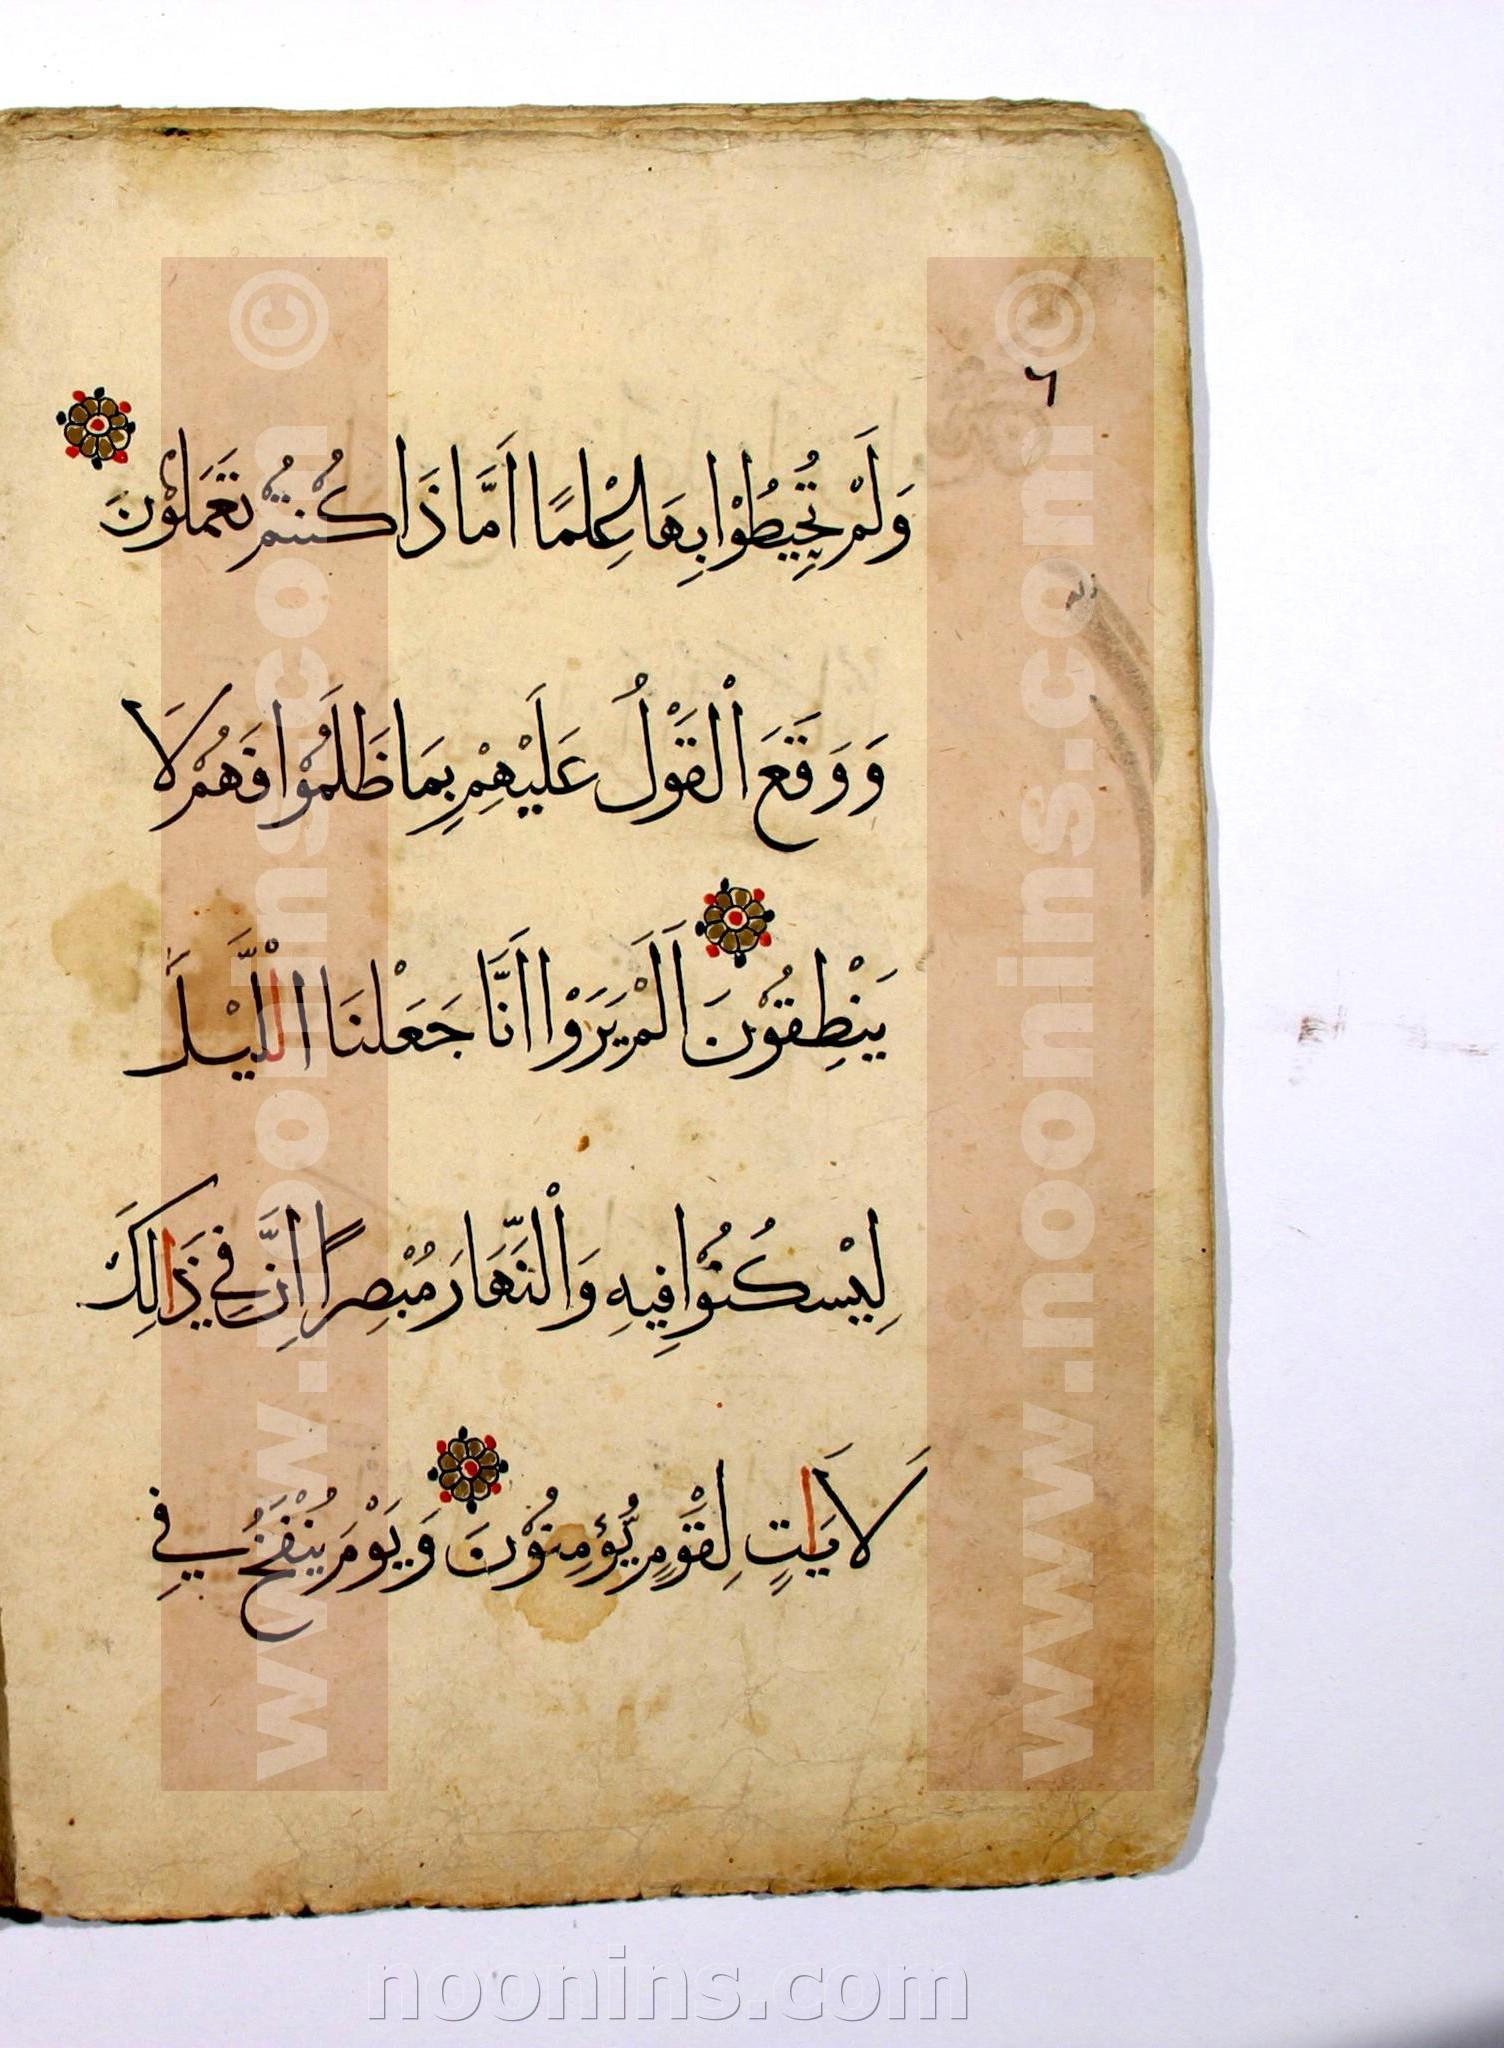 ٦
وَلَمْ تُحِيطُوْا بِهَا عِلْمًا اَمَّا ذَا كُنْتُمْ تَعْمَلُوْنَ
وَوَقَعَ الْقَوْلُ عَلَيْهِمْ بِمَا ظَلَمُوْا فَهُمْ لَا
يَنْطِقُوْنَ اَلَمْ يَرَوْا اَنَّا جَعَلْنَا الْلَّيْلَ
لِيَسْكُنُوْا فِيهِ وَالْنَّهَارَ مُبْصِرًا اِنَّ فِي ذَالِكَ
لَاَيَاتٍ لِقَوْمٍ يُّؤمِنُوْنَ وَيَوْمَ يُنْفَخُ فِي
www.noonins.com ©
www.noonins.com ©
noonins.com